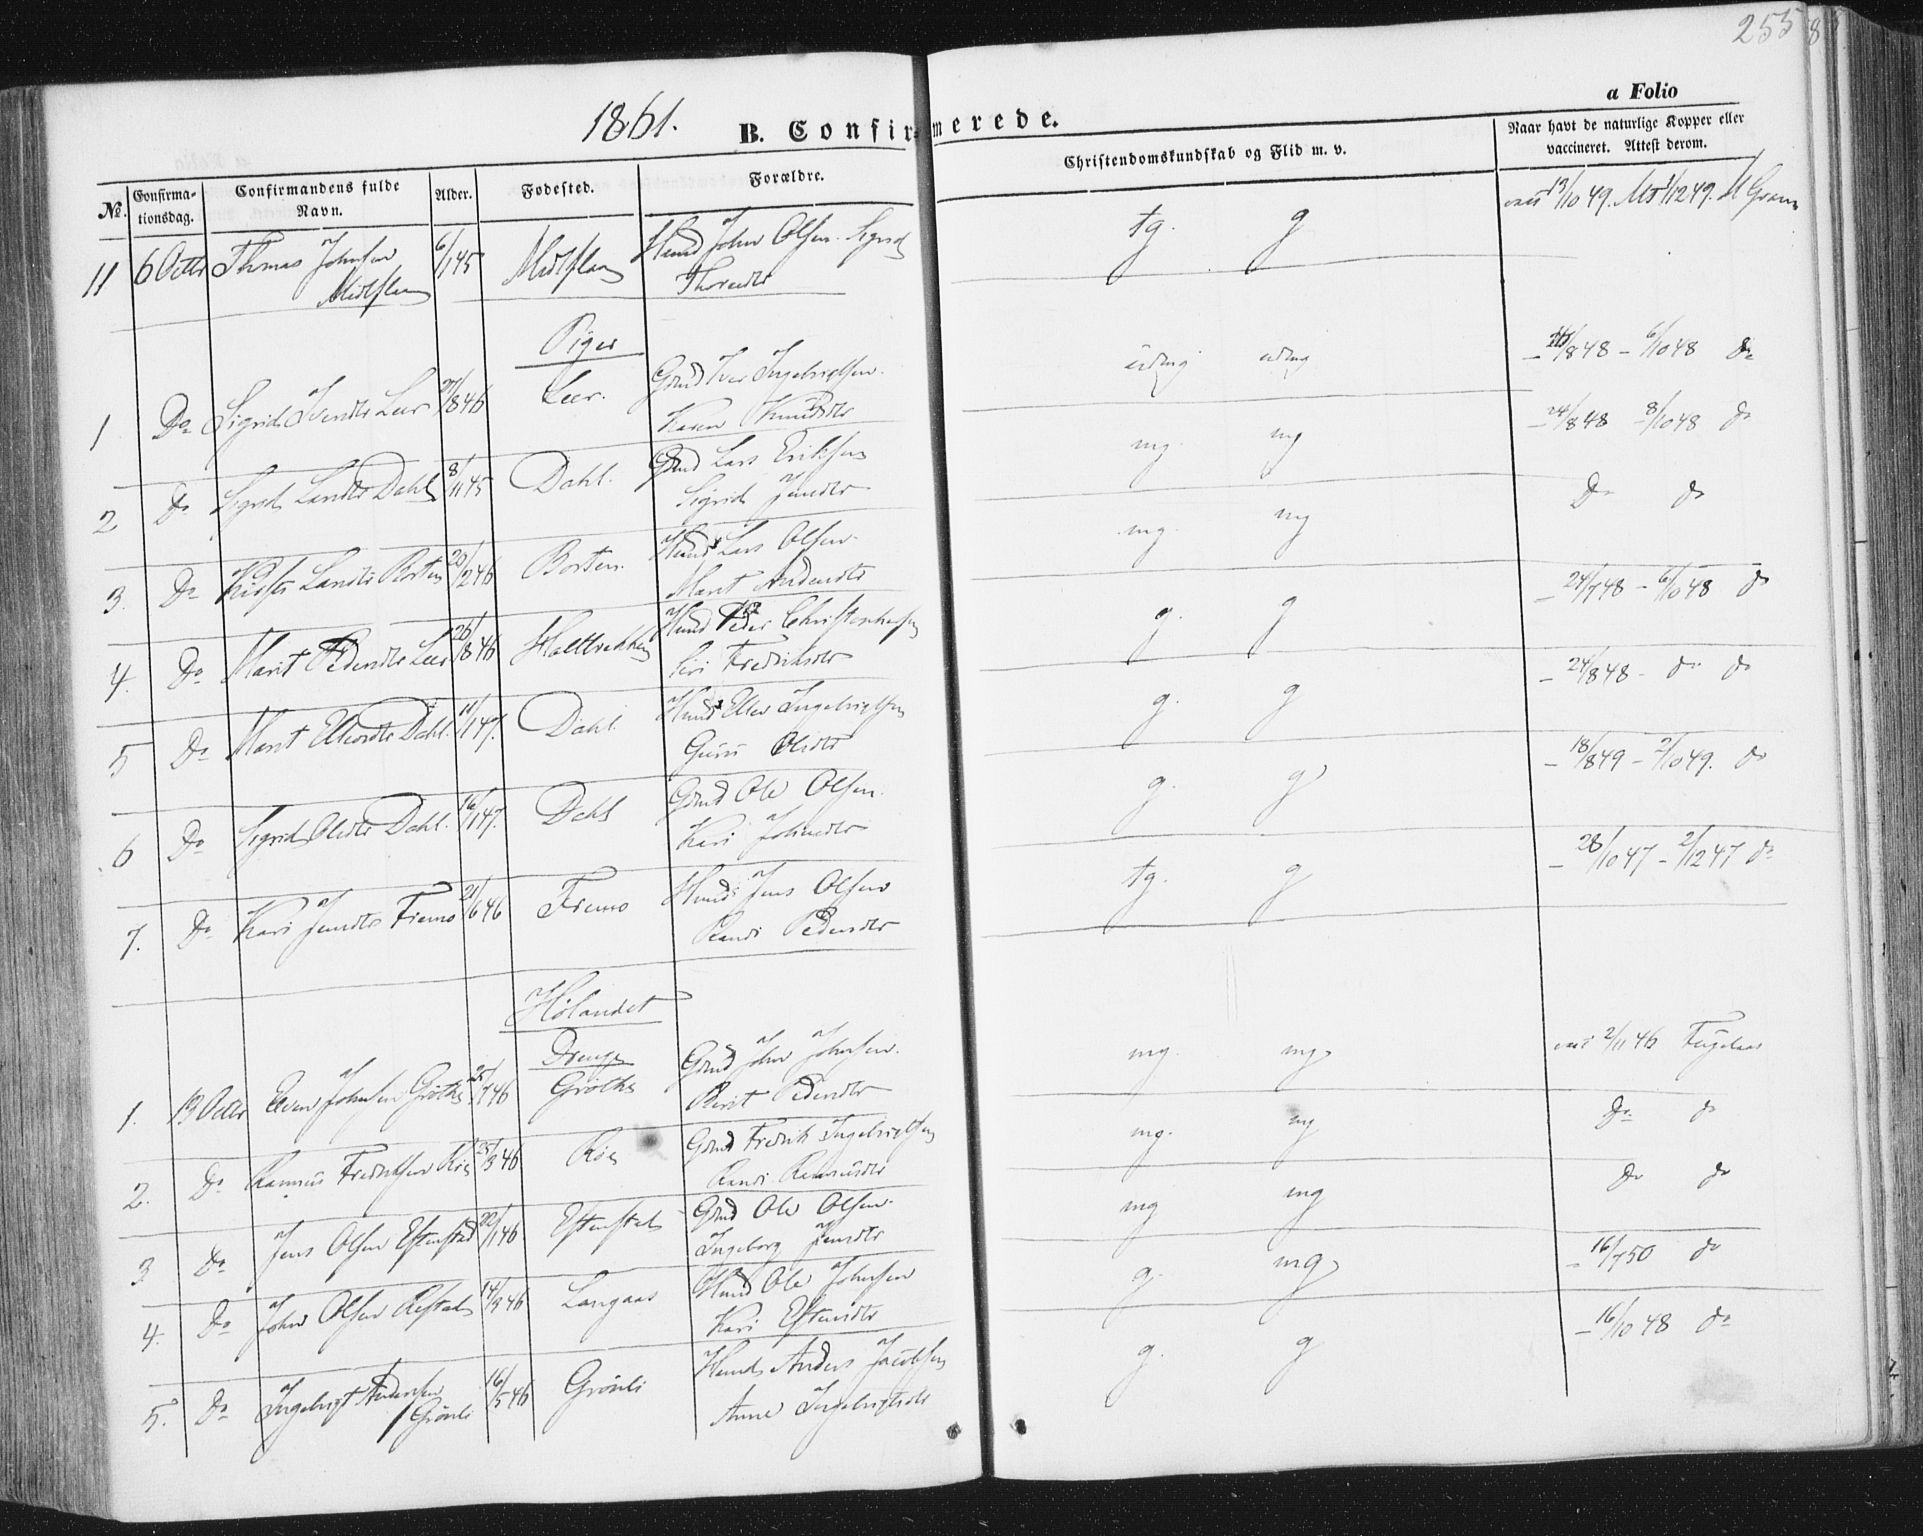 255 8
1861.
B. Confirmerede.
a Folio
No.
Confirma-
tionsdag.
Confirmandens fulde
Navn.
Alder.
Fødested.
Forældre.
Christendomskundskab og Flid m. v.
Naar havt de naturlige Kopper eller
vaccineret. Attest derom.
11 6 Octbr Thomas Johnsen 6/1 45 Husmd John Olsen. Sigrid tg. g vacc 13/10 49.
Piger
1 Do Sigrid Leer 27/8 46 Leer. Gmd Iver Ingebrigtsen. udmg udmg 6/10 48 do
Karen Knudsdtr
2 Do Sigrid Larsdtr Dahl 8/11 45 Dahl. Gmd Lars Eriksen mg. mg – 24/8 48 – 8/10 48 do
Sigrid Jensdtr
3. Do Larsdtr Borten 20/2 46 Borten. Husmd Lars Olsen. mg. mg Do do
Marit Andersdtr
4. Do Marit Pedersdtr Leer 26/8 46 Husmd Peder Christophersen g. g – 24/7 48 – 6/10 48 do
Siri Fredriksdtr
5 Do Marit Ellevsdtr Dahl. 11/1 47. Dahl. Husmd Ellev Ingebrigtsen g. g – 24/8 48 – do do
Guru Olsdtr
6 Do Sigrid Olsdtr Dahl. 16/1 47. Dahl Gmd Ole Olsen. g. g – 18/8 49 – 2/10 49. do
Kari Johnsdtr
7. Do Kari Jensdtr Fremo 21/6 46 Fremo Husmd Jens Olsen tg. g – 28/10 47 – 2/12 47 do
Randi Pedersdtr
Hølandet
Drenge
1. 13 Octbr Even Johnsen Grøthe Grøthe Gmd John Johnsen. mg. mg vacc 2/11 46
Berit Pedersdtr
2. Do Rasmus Fredriksen Røe Røe Gmd Fredrik Ingebrigtsen mg. mg Do do
Randi Rasmusdtr
3 Do Jens Olsen Estenstad 22/1 46 Estenstad Gmd Ole Olsen. mg mg Do do
Ingeborg Jensdtr
4. Do John Olsen 14/3 46 Langaas Husmd Ole Johnsen g. mg – 16/7 50 do
Kari Estensdtr
5. Do Ingebrigt Andersen 16/5 46 Grønli Husmd Anders Jacobsen g. g – 16/10 48 do
Grønli Anne Ingebrigtsdtr